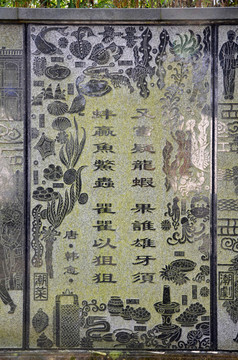 又嘗疑龍蝦　果誰雄牙須
蚌蠃魚鱉蟲　瞿瞿以狙狙
唐·韩愈
潮菜
潮